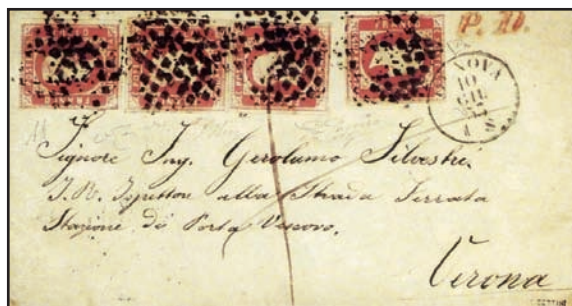 P. D.
NOVA
10
GIU
Signore Ing. Gerolamo Silvestri
I. R. Ispettore alla Strada Ferrata
Stazione di Porta Vescovo.
Verona